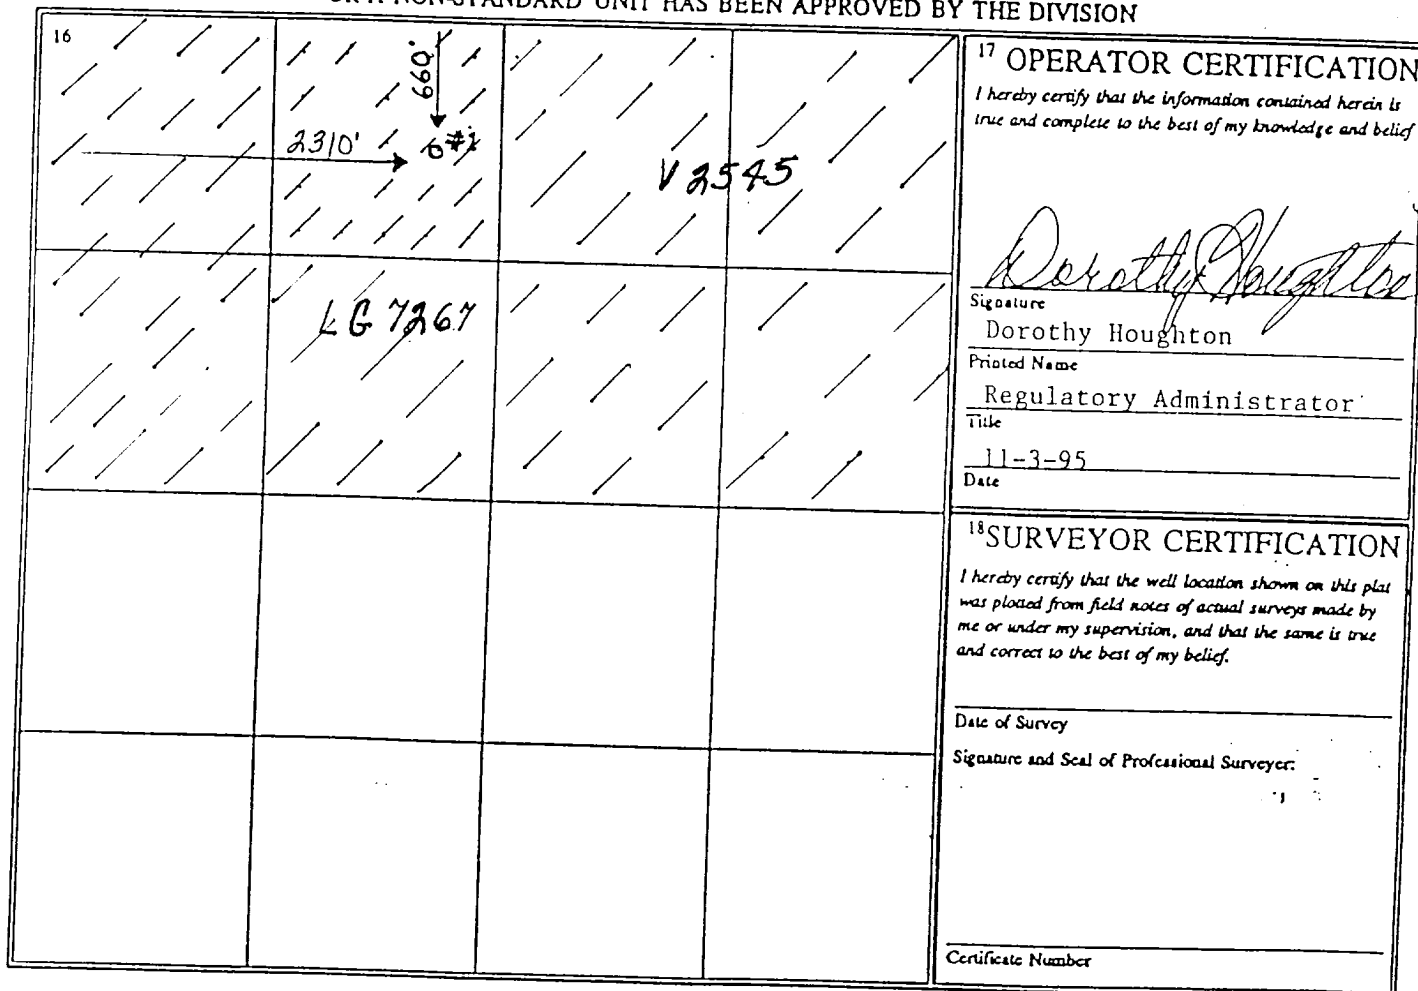 NON-STANDARD UNIT HAS BEEN APPROVED BY THE DIVISION
16
660'
2310'
#1
V 2545
LG 7267
17 OPERATOR CERTIFICATION
I hereby certify that the information contained herein is
true and complete to the best of my knowledge and belief
Dorothy Houghton
Signature
Dorothy Houghton
Printed Name
Regulatory Administrator
Title
11-3-95
Date
18 SURVEYOR CERTIFICATION
I hereby certify that the well location shown on this plat
was plotted from field notes of actual surveys made by
me or under my supervision, and that the same is true
and correct to the best of my belief.
Date of Survey
Signature and Seal of Professional Surveyer:
Certificate Number